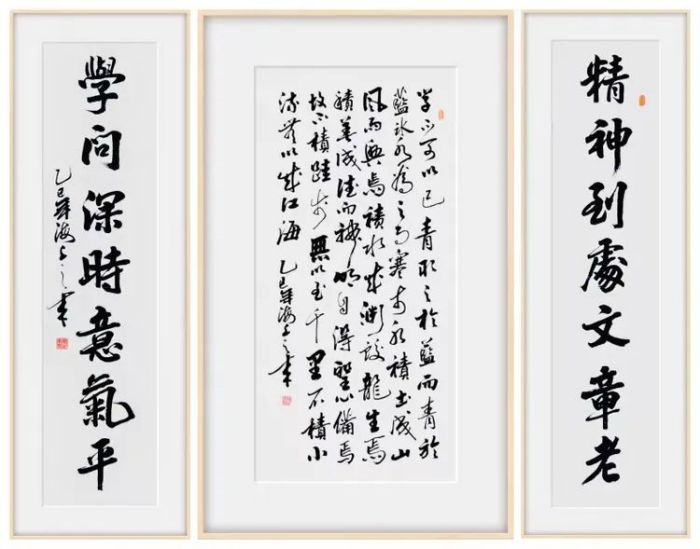 精神到處文章老
学不可以已青取之於藍而青於
藍冰水為之而寒於水積土成山
風雨興焉積水成淵蛟龍生焉
積善成德而神明自得聖心備焉
故不積跬步無以至千里不積小
流無以成江海 乙巳年海 書
學問深時意氣平
乙巳年海 書